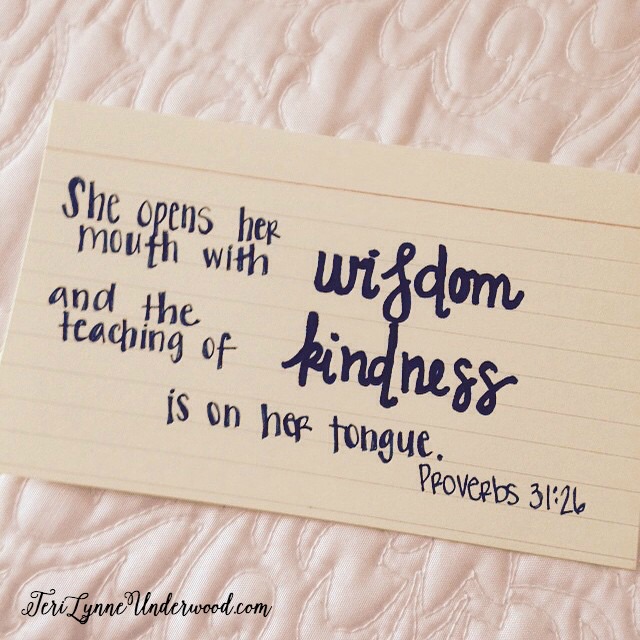 She opens her
mouth with wisdom
and the
teaching of kindness
is on her tongue.
Proverbs 31:26
TeriLynneUnderwood.com